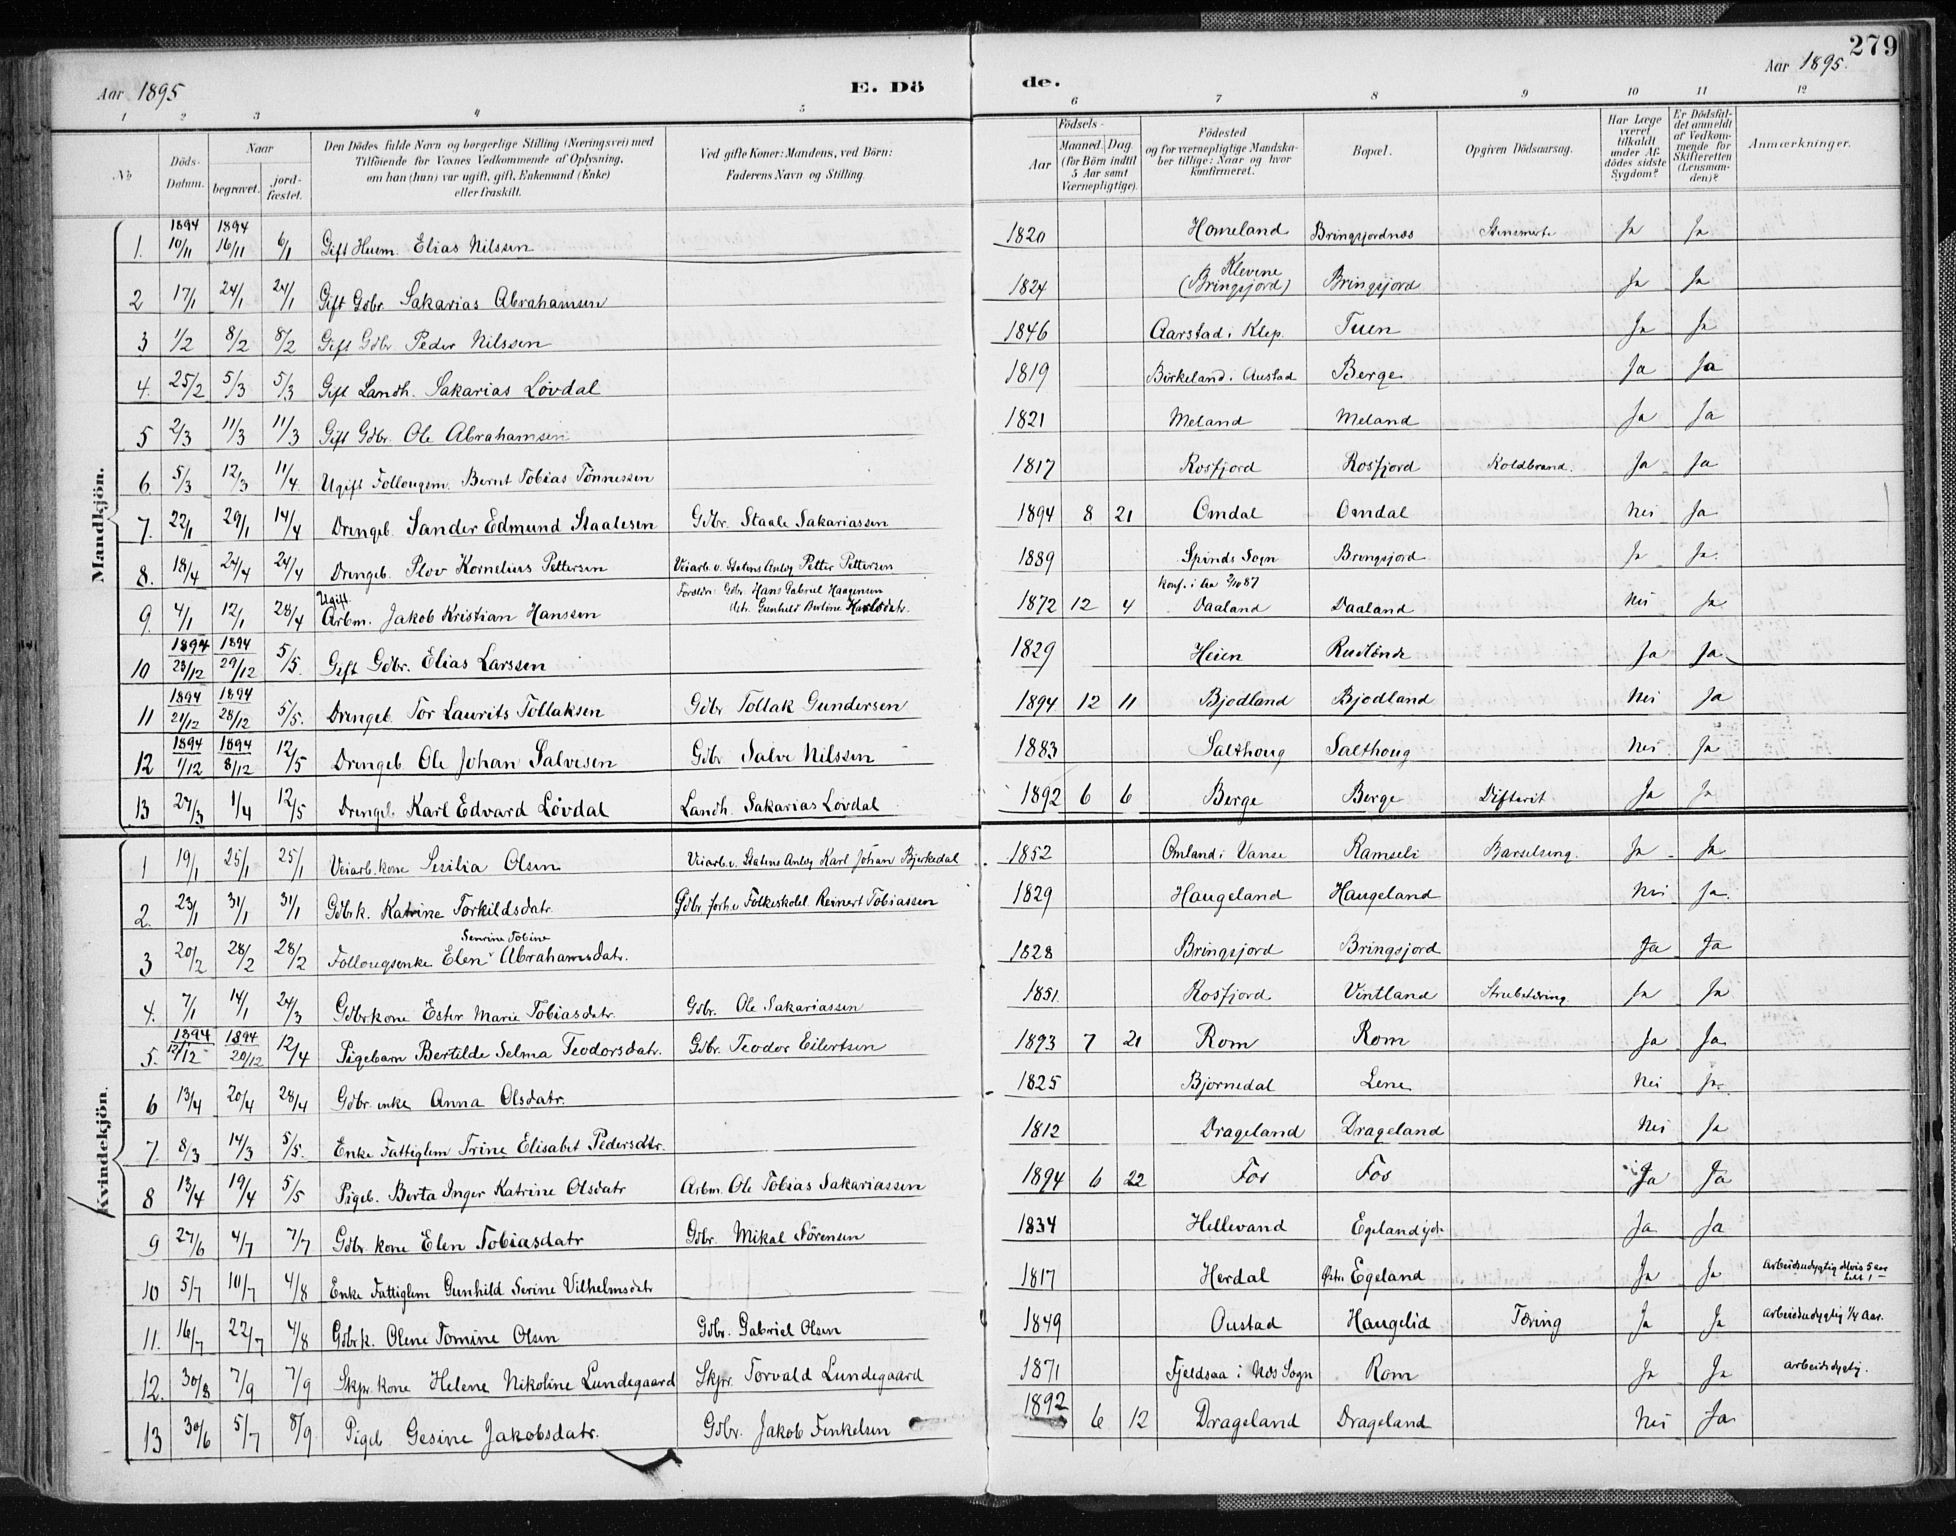 279
Aar 1895 E. Dö de. Aar 1895.
1 2 3 4 5 6 7 8 9 10 11 12
No
Döds-Datum.
Naar
begravet.
jord-fæstet.
Den Dödes fulde Navn og borgerlige Stilling (Næringsvei) med
Tilföiende for Voxnes Vedkommende af Oplysning,
om han (hun) var ugift, gift, Enkemand (Enke)
eller fraskilt.
Ved gifte Koner: Mandens, ved Börn:
Faderens Navn og Stilling.
Födsels-
Aar
Maaned. Dag.
(for Börn indtil
5 Aar samt
Værnepligtige).
Födested
og for værnepligtige Mandska-
ber tillige: Naar og hvor
konfirmeret.
Bopæl.
Opgiven Dödsaarsag.
Har Læge
været
tilkaldt
under Af-
dödes sidste
Sygdom?
Er Dödsfal-
det anmeldt
af Vedkom-
mende for
Skifteretten
(Lensman-
den)?
Anmærkninger.
Mandkjön.
1. 1894 10/11 1894 16/11 6/1 Gift Husm. Elias Nilssen 1820 Homeland Bringsjordnes Ja Ja
2 17/1 24/1 24/1 Gift Gdbr. Sakarias Abrahamsen 1824 Klevene (Bringsjord) Bringsjord Ja Ja
3 1/2 8/2 8/2 Gift Gdbr. Peder Nilssen 1846 Aarstad i Klep. Tuen Ja Ja
4. 25/2 5/3 5/3 Gift Landh. Sakarias Lövdal 1819 Birkeland i Austad Berge Ja Ja
5 2/3 11/3 11/3 Gift Gdbr. Ole Abrahamsen 1821 Meland Meland Ja Ja
6. 5/3 12/3 11/4. Ugift Follougsm. Bernt Tobias Tönnessen 1817 Rosfjord Rosfjord Koldbrand. Ja Ja
7. 22/1 29/1 14/4 Drengeb. Sander Edmund Staalesen Gdbr. Staale Sakariassen 1894 8 21 Omdal Omdal Nei Ja
8. 18/4 24/4 24/4 Drengeb. Plov Kornelius Pettersen Veiarb. v. Statens Anlæg Petter Pettersen 1889 Spinds Sogn Bringsjord Ja Ja.
9. 4/1 12/1 28/4 Ugift Arbm. Jakob Kristian Hanssen Foreldre: Gdbr. Hans Gabriel Haagensen 1872 12 4 Daaland Daaland Nei Ja
10 1894 23/12 1894 29/12 5/5. Gift Gdbr. Elias Larssen 1829 Heien Ja Ja
11 1894 21/12 1894 28/12 5/5. Drengeb. Tor Laurits Tollaksen Gdbr Tollak Gundersen 1894 12 11 Bjodland Bjodland Nei Ja
12 1894 1/12 1894 8/12 12/5 Drengeb. Ole Johan Salvesen Gdbr. Salve Nilssen 1883 Salthoug Salthoug Nei Ja
13 27/3 1/4 12/5 Drengeb. Karl Edvard Lövdal Landh. Sakarias Lövdal 1892 6 6 Berge Berge Difterit Ja Ja
Kvindekjön.
1 19/1 25/1 25/1 Veiarb. kone Sesilia Olsen Veiarb. v. Statens Anlæg Karl Johan Bjerkedal 1852 Omland i Vanse Ramseli Barselseng. Ja Ja
2. 23/1 31/1 31/1 Gdbrk. Katrine Torkildsdatr. Gdbr. forh.v Folkeskolel. Reinert Tobiassen 1829 Haugeland Haugeland Nei Ja.
3 20/2 28/2 28/2 Follougsenke Elen Senrine Tobine Abrahamsdatr. 1828 Bringsjord Bringsjord Ja Ja
4. 7/1 14/1 24/3 Gdbrkone Ester Marie Tobiasdatr. Gdbr. Ole Sakariassen 1851. Rosfjord Vintland Strubetæring Ja Ja
5. 1894 12/12 1894 20/12 12/4 Pigebarn Bertilde Selma Teodorsdatr. Gdbr. Teodor Eilertsen 1893 7 21 Rom Rom Ja Ja
6 13/4 20/4 28/4 Gdbr. enke Anna Olsdatr. 1825 Bjornedal Lene Nei Ja.
7. 8/3 14/3 5/5. Enke Fattiglem Trine Elisabet Pedersdtr. 1812 Drageland Drageland Nei Ja
8 13/4 19/4 5/5 Pigeb. Berta Inger Katrine Olsdatr Arbm. Ole Tobias Sakariassen 1894 6 22 Fos Fos Ja Ja
9 27/6 4/7 7/7 Gdbr. kone Elen Tobiasdatr Gdbr. Mikal Sörensen 1834 Hellevand Egeland ydr Ja Ja
10 5/7 10/7 4/8 Enke Fattiglem Gunhild Serine Vilhelmsdatr 1817 Herdal Östr. Egeland Ja Ja Arbeidsudygtig delvis 5 aar
11. 16/7 22/7 4/8 Gdbrk. Olene Tomine Olsen Gdbr. Gabriel Olsen 1849 Oustad Haugelid Tæring Ja Ja arbeidsudygtig 1/4 Aar.
12. 30/8 7/9 7/9 Skpr. kone Helene Nikoline Lundegaard Skjpr. Torvald Lundegaard 1871 Fjeldsaa i Nes Sogn Rom Ja Ja arbeidsdygtig.
13 30/6 5/7 8/9 Pigeb. Gesine Jakobsdatr. Gdbr. Jakob Finkelsen 1892 6 12 Drageland Drageland Nei Ja